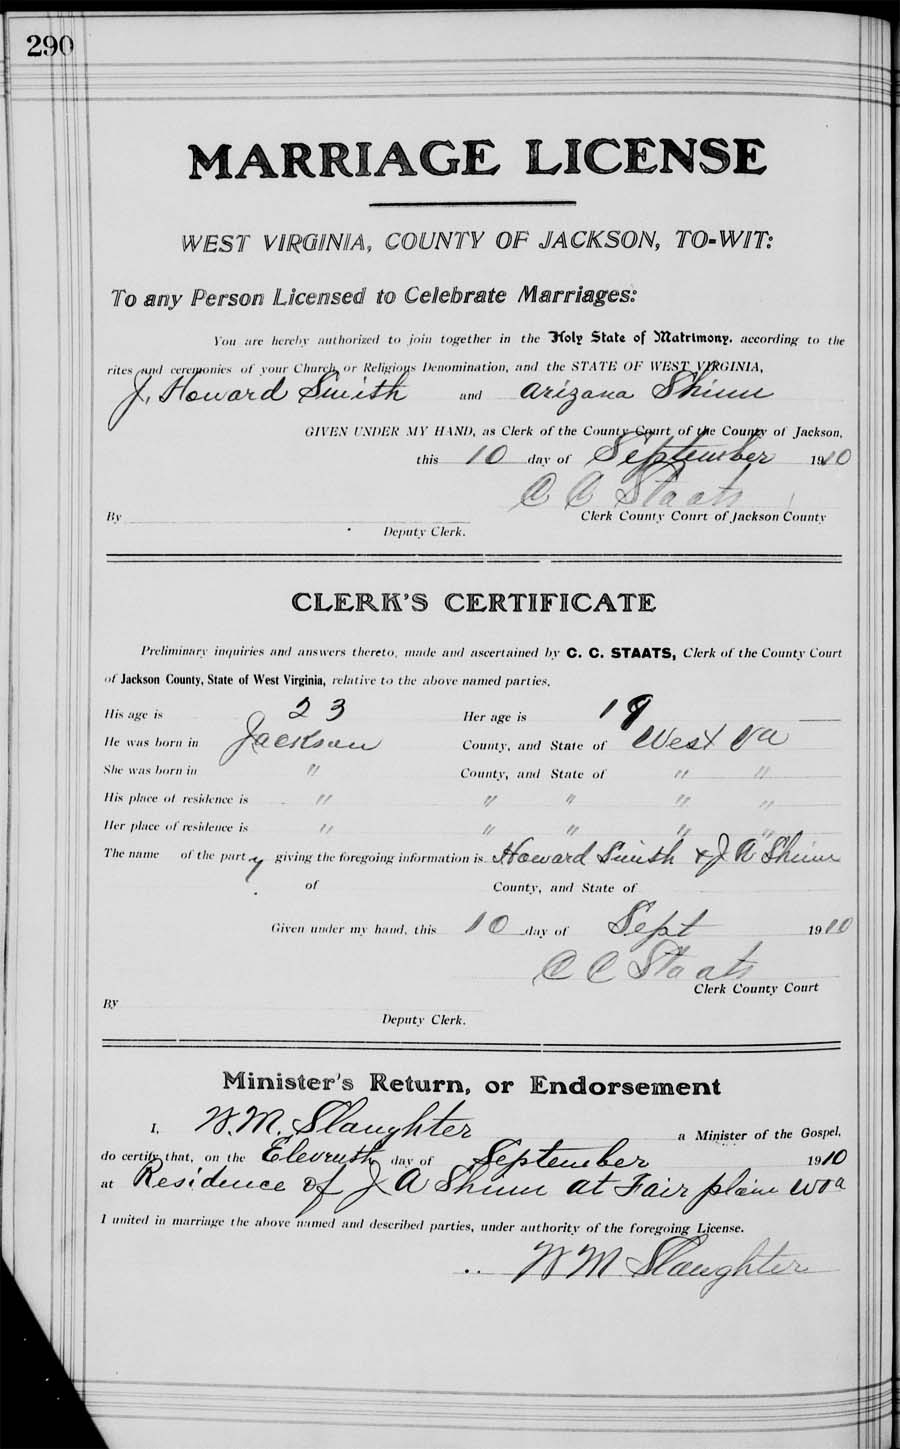 290
MARRIAGE LICENSE
WEST VIRGINIA, COUNTY OF JACKSON, TO-WIT:
To any Person Licensed to Celebrate Marriages:
You are hereby authorized to join together in the Holy State of Matrimony, according to the
rites and ceremonies of your Church or Religious Denomination, and the STATE OF WEST VIRGINIA,
J. Howard Smith and Arizana Shinn
GIVEN UNDER MY HAND, as Clerk of the County Court of the County of Jackson,
this 10 day of September 1910
C C Staats
By Clerk County Court of Jackson County
Deputy Clerk.
CLERK'S CERTIFICATE
Preliminary inquiries and answers thereto, made and ascertained by C. C. STAATS, Clerk of the County Court
of Jackson County, State of West Virginia, relative to the above named parties.
His age is 23 Her age is 19
He was born in Jackson County, and State of West Va
She was born in " County, and State of " "
His place of residence is " " " " "
Her place of residence is " " " " "
The name of the party giving the foregoing information is Howard Smith & J A Shinn
of County, and State of
Given under my hand, this 10 day of Sept 1910
C C Staats
Clerk County Court
By
Deputy Clerk.
Minister's Return, or Endorsement
I, W. M. Slaughter a Minister of the Gospel,
do certify that, on the Elevnth day of September 1910
at Residence of J A Shinn at Fair plain W Va
I united in marriage the above named and described parties, under authority of the foregoing License.
W M Slaughter